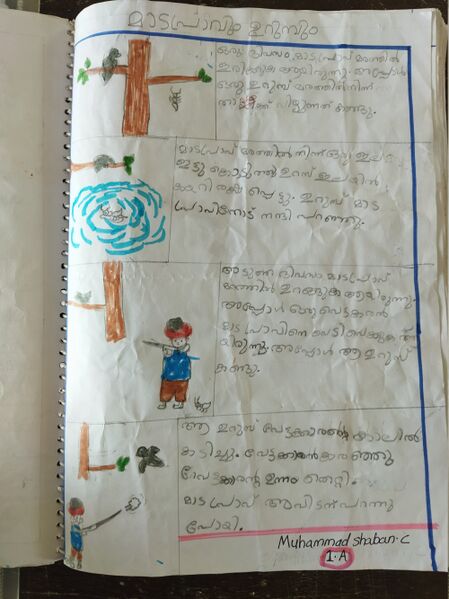 മാടപ്രാവും ഉറുമ്പും
ഒരു ദിവസം മാടപ്രാവ് മരത്തിൽ
ഇരിക്കുക ആയിരുന്നു. അപ്പോൾ
ഒരു ഉറുമ്പ് മരത്തിൽ നിന്ന്
വീഴുന്നത് കണ്ടു.
മാടപ്രാവ് മരത്തിൽ നിന്ന് ഒരു ഇല
ഇട്ടു കൊടുത്തു ഉറുമ്പ് ഇലയിൽ
കയറി രക്ഷപ്പെട്ടു. ഉറുമ്പ് മാട
പ്രാവിനോട് നന്ദി പറഞ്ഞു.
അടുത്ത ദിവസം മാടപ്രാവ്
മരത്തിൽ ഉറങ്ങുക ആയിരുന്നു.
അപ്പോൾ ഒരു വേട്ടക്കാരൻ
മാടപ്രാവിനെ
യിരുന്നു. അപ്പോൾ ആ ഉറുമ്പ്
കണ്ടു.
ആ ഉറുമ്പ് വേട്ടക്കാരന്റെ കാലിൽ
കടിച്ചു. വേട്ടക്കാരൻ കരഞ്ഞു
വേട്ടക്കാരന്റെ ഉന്നം തെറ്റി.
മാടപ്രാവ് അവിടന്ന് പറന്നു
പോയി.
Muhammad shaban.c
1.A